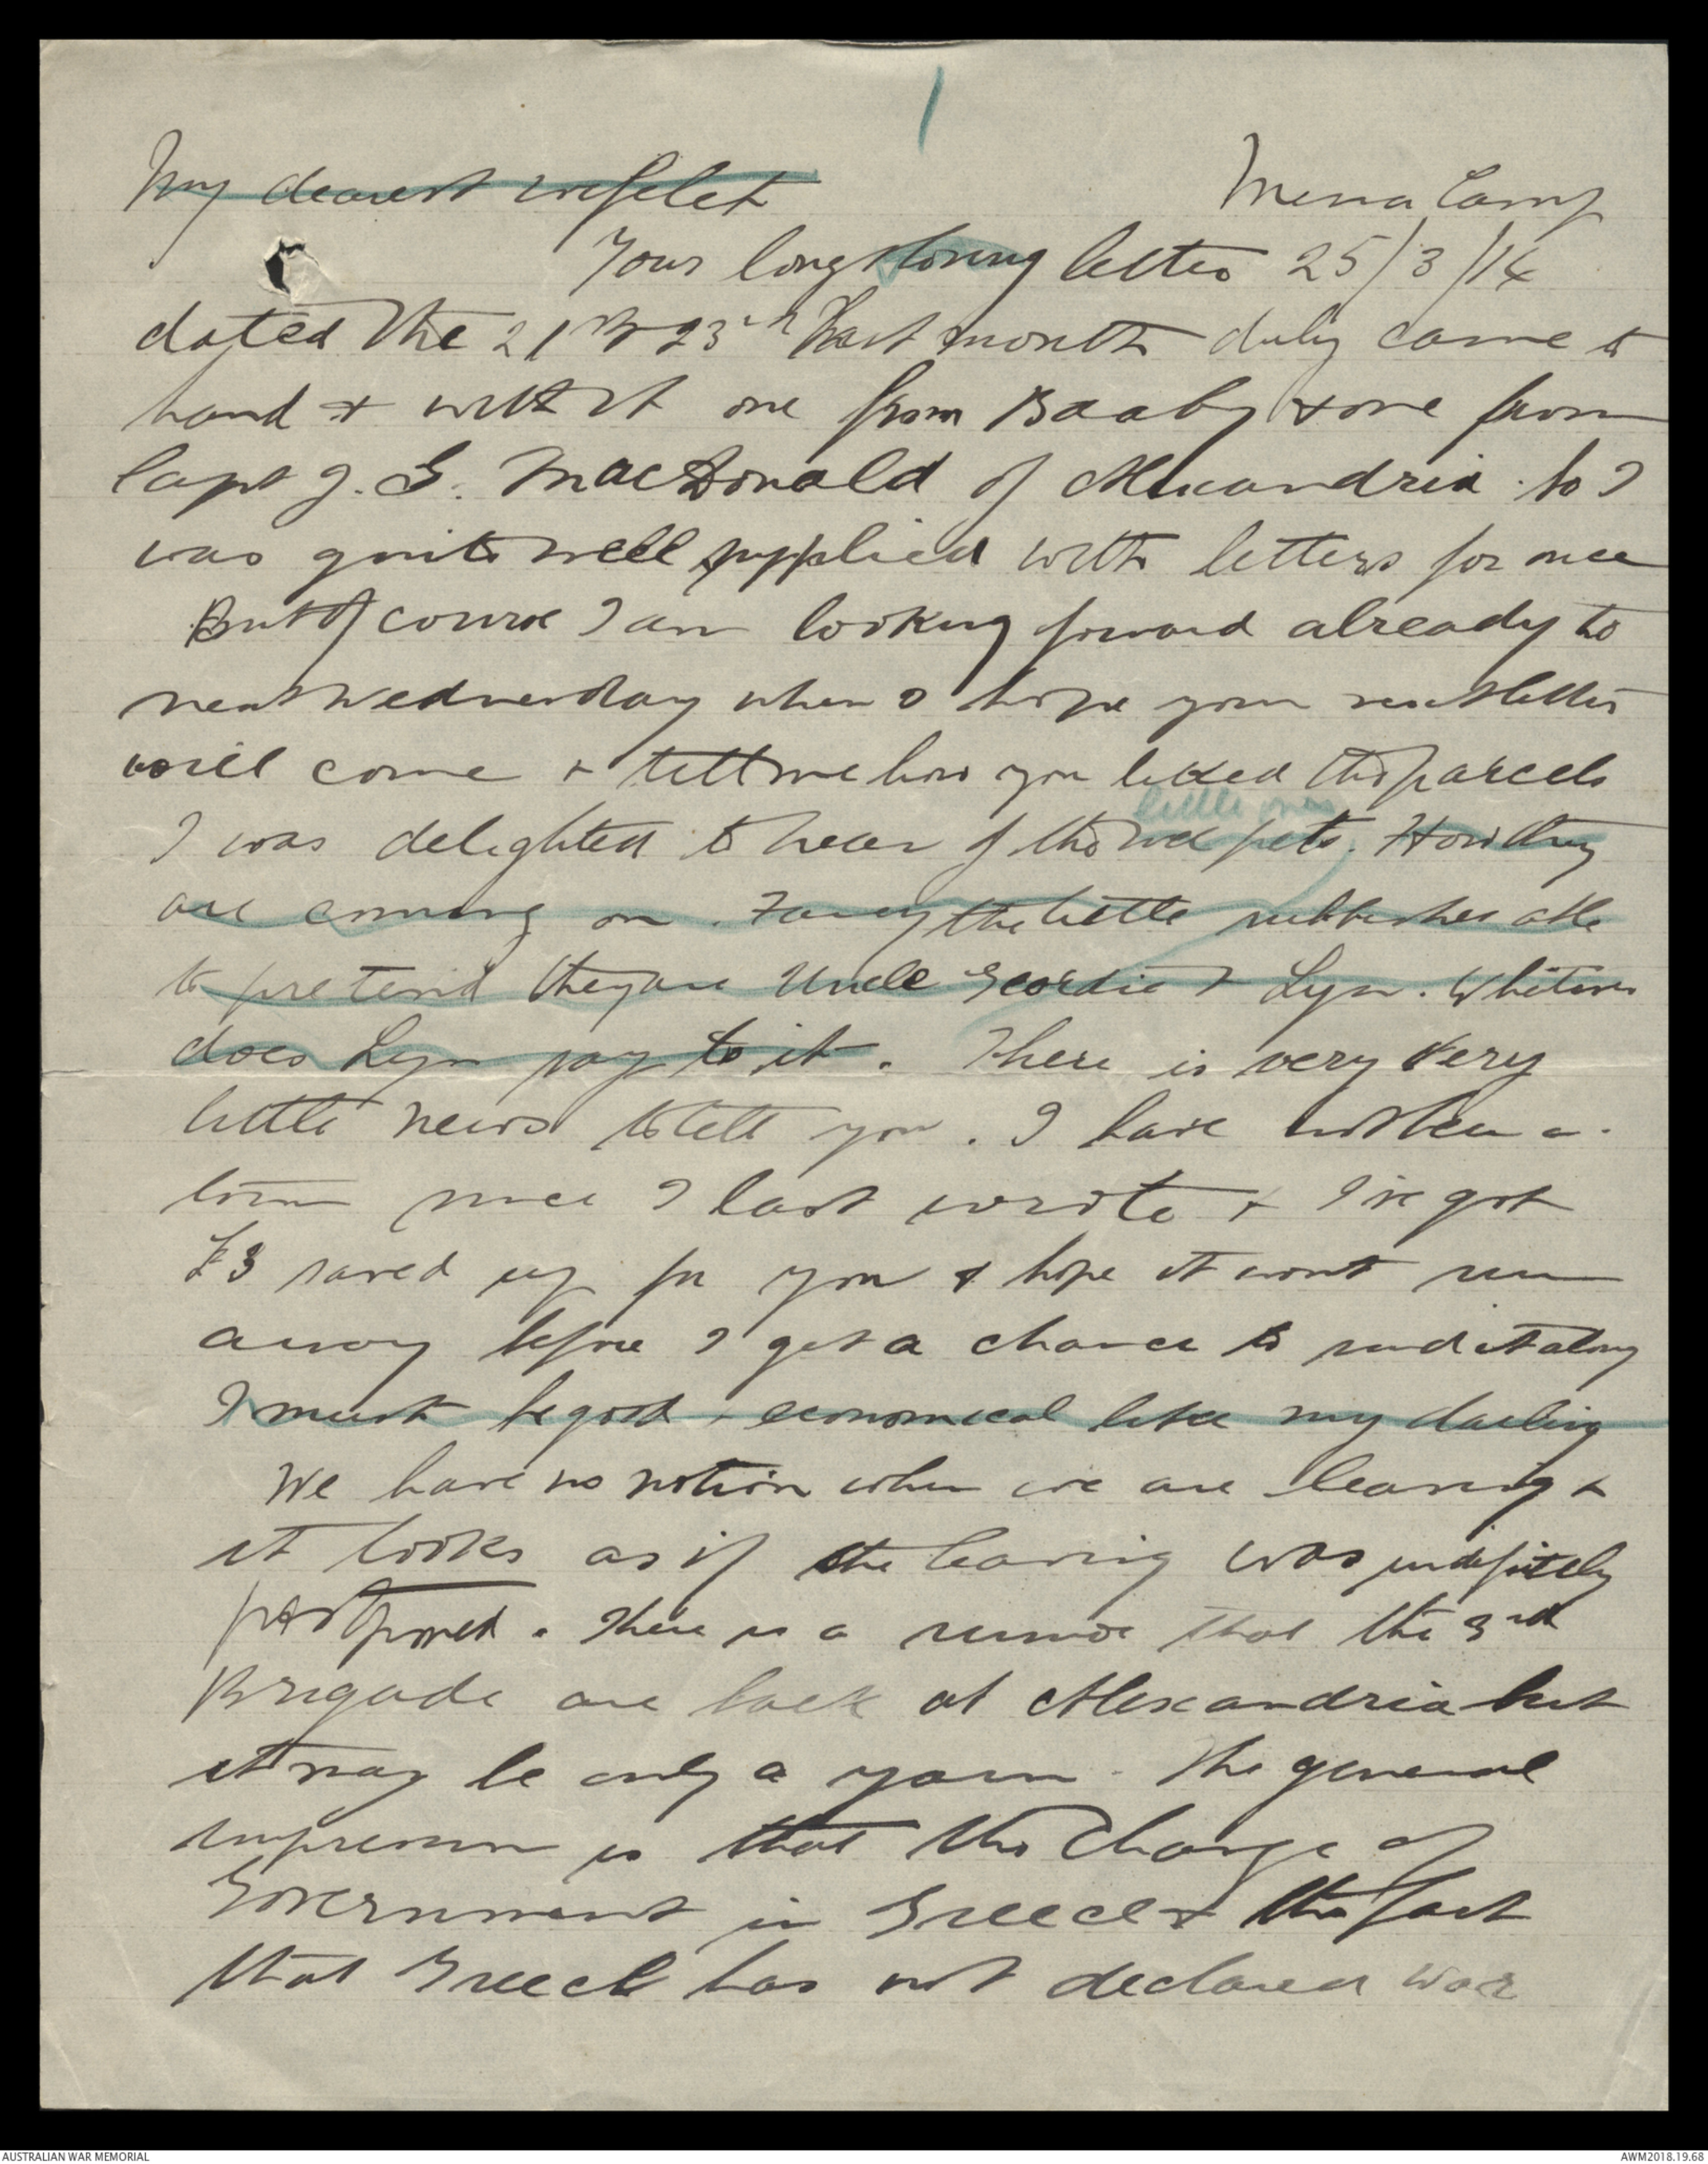 1
My dearest wifelet Mena Camp
Your long & loving letter 25/3/14
dated the 21st & 23rd last month duly came to
hand & with it one from Baaby & one from
Capt J. G. MacDonald of Alexandria. So I
was quite well supplied with letters for once
But of course I am looking forward already to
next Wednesday when I hope your next letter
will come & tell me how you liked the parcels
little ones
I was delighted to hear of the wee pets. How they
are coming on. Fancy the little rubbishes able
to pretend they are Uncle Geordie & Lyn. Whatever
does Lyn say to it. There is very very
little news to tell you. I have not been a
town since I last wrote & I've got
£3 saved up for you & hope it wont run
away before I get a chance to send it along
I must be good & economical like my darling
We have no notion when we are leaving &
it looks as if the leaving was indefinitely
postponed. There is a rumor that the 3rd
Brigade are back at Alexandria but
it may be only a yarn. The general
impression is that the Change of
Government in Greece & the fact
that Greece has not declared war
AUSTRALIAN WAR MEMORIAL AWM2018.19.68